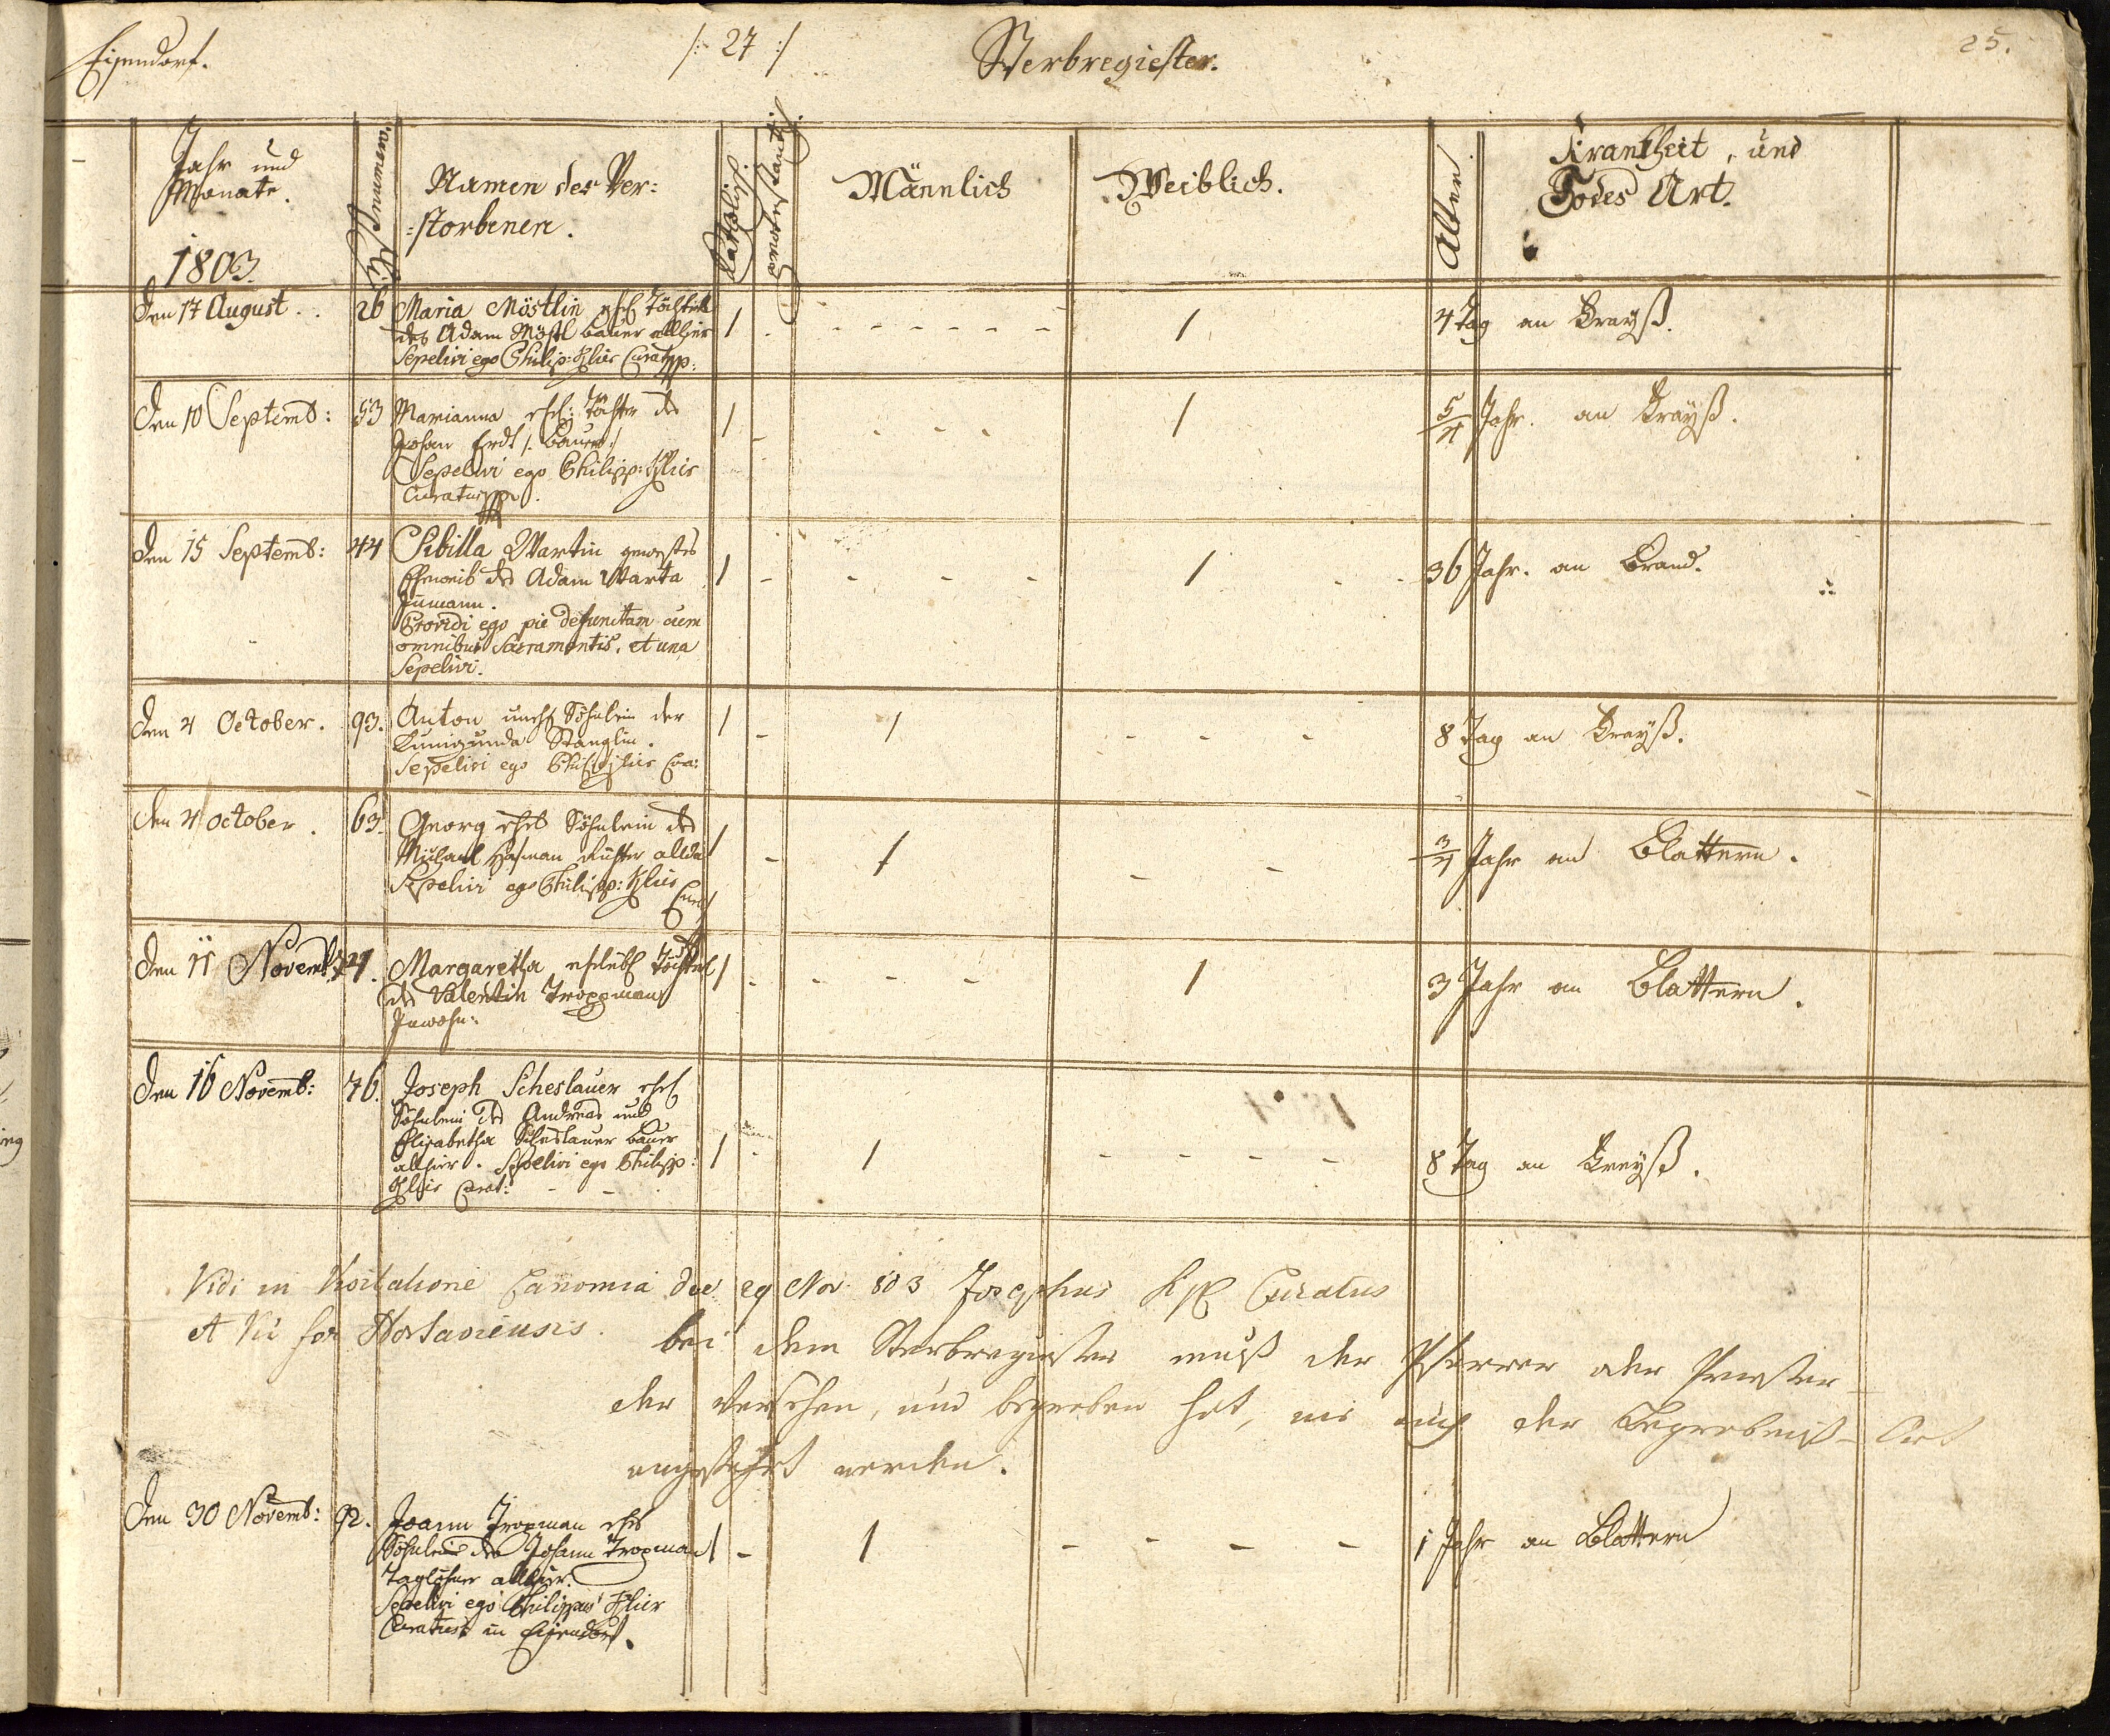 Eisendorf.
/: 27 :/
Sterbregiester.
25.
Jahr und
Monate.
1803.
Namen des Ver:
:storbenen.
Katholisch.
protestant:
Männlich
Weiblich.
Alter.
Krankheit, und
Todes Art.
Den 17 August . . 26 Maria Möstlin ehel Töchterl 1 - - - - - - - 1 4 Tag an Frayß.
des Adam Möstl bauer allhier
Sepelivi ego Philip: Klier Curat
Den 10 Septemb: 53 Marianna ehel: Tochter des 1 - - - - 1 5/4 Jahr. an Frayß.
Johan Erdt /: bauer :/
Sepelivi ego Philipp: Klier
Curatus
Den 15 Septemb: 44 Sibilla Wartin gewestes 1 - - - - 1 - - 36 Jahr. an Brand.
Eheweib des Adam Warta
Inmann.
Providi ego pie defunctam cum
omnibus Sacramentis, et una
Sepelivi.
Den 4 October. 93. Anton unehl Söhnlein der 1 - 1 - - - 8 Tag an Frayß.
Kunigunda Stanglin.
Sepelivi ego Klier
den 4 October. 63. Georg ehel Söhnlein des
Michael Hofman allda 1 - 1 - - 3/4 Jahr an Blattern.
Sepelivi ego Philipp: Klier
Curat
Den 11 Novemb: Margaretha ehelich Töchterl 1 - - - - 1 3 Jahr an Blattern.
des Valentin Troppman
Inwohn:
Den 16 Novemb: 76. Joseph Scheslauer ehel
Söhnlein des Andreas und
Elisabetha Scheslauer bauer 1 - 1 - - - - 8 Tag an Frayß.
allhier. Sepelivi ego Philipp:
Klier Curat: - -
Vidi in Visitatione Canonica die 29 Nov. 803 Josephus Curatus
et Hostaviensis.
bei dem Sterbregister muß der Pfarrer oder Priester
der versehen, und begraben hat, wie auch der Begräbniß-Ort
angeführt werden.
Den 30 Novemb: 92. Joann Tropman ehel
Söhnlein des Johann Tropman 1 - 1 - - - - 1 Jahr an Blattern
Taglöhner allhier.
Sepelivi ego Philippus Klier
Curatus in Eisendorf.